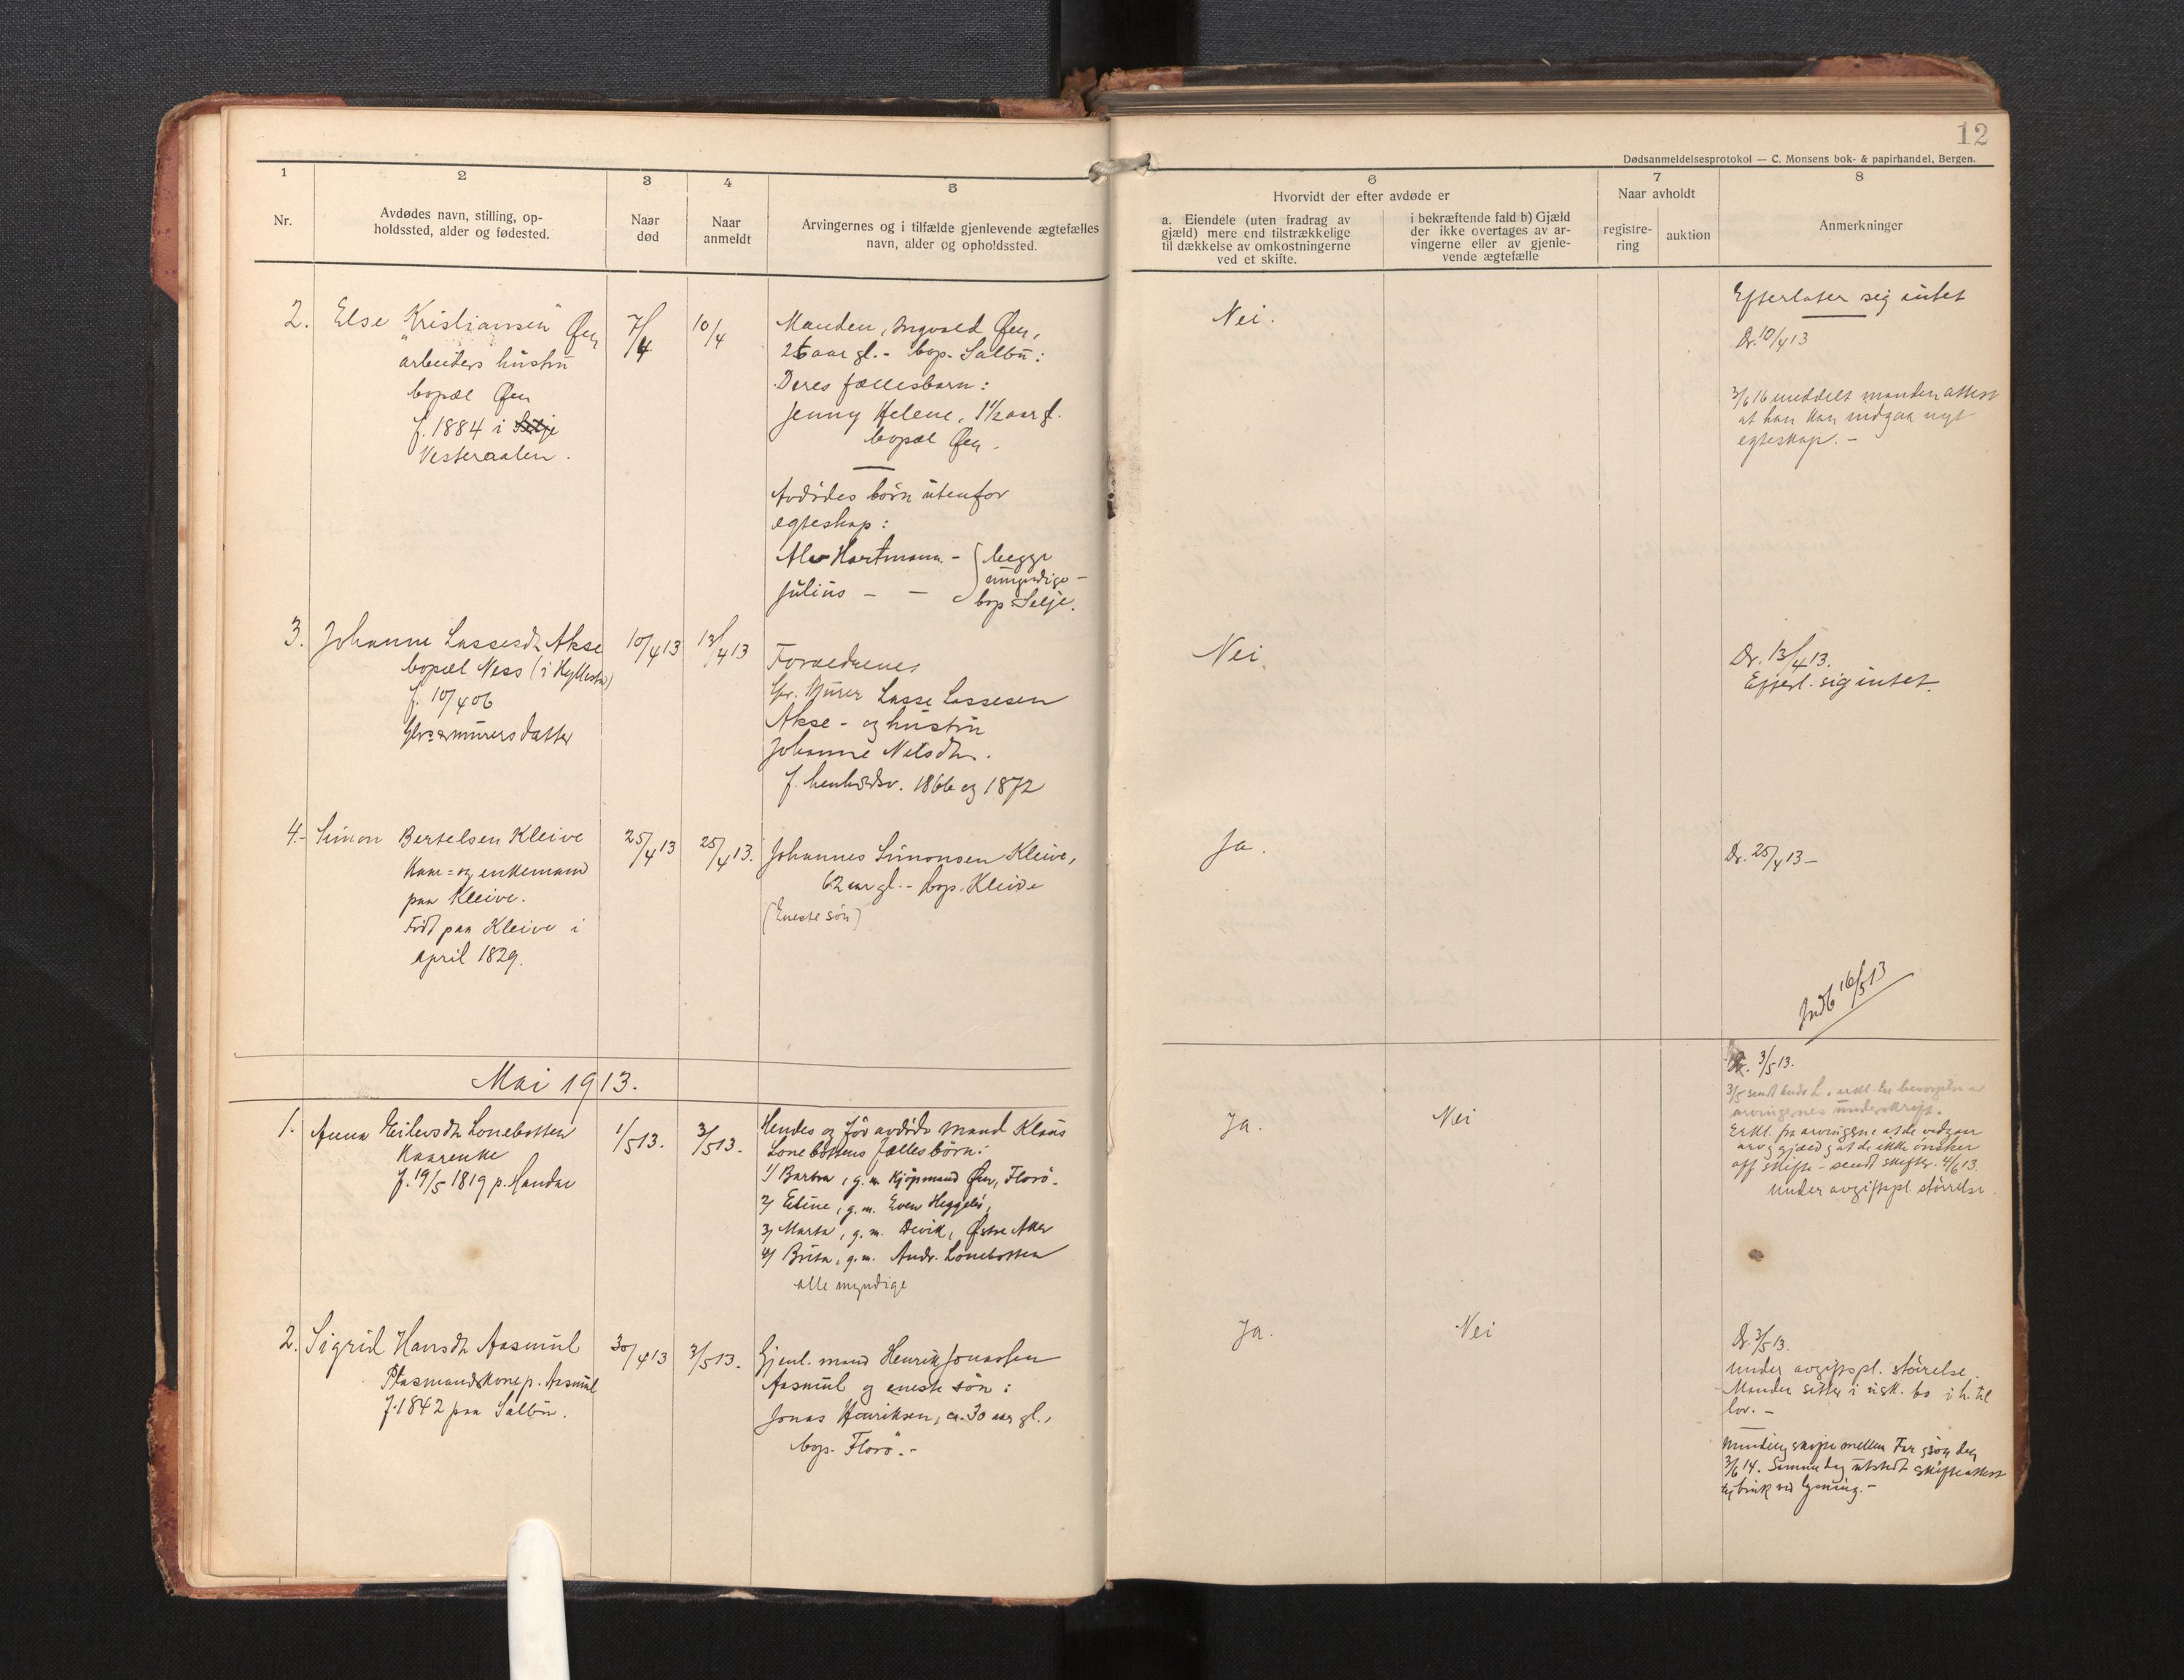 12
Dødsanmeldelsesprotokol — C. Monsens bok- & papirhandel, Bergen.
1
2
3
4
5
6
7
8
Nr.
Avdødes navn, stilling, op-
holdssted, alder og fødested.
Naar
død
Naar
anmeldt
Arvingernes og i tilfælde gjenlevende ægtefælles
navn, alder og opholdssted.
Hvorvidt der efter avdøde er
a. Eiendele (uten fradrag av
gjæld) mere end tilstrækkelige
til dækkelse av omkostningerne
ved et skifte.
i bekræftende fald b) Gjæld
der ikke overtages av ar-
vingerne eller av gjenle-
vende ægtefælle
Naar avholdt
registre-
ring
auktion
Anmerkninger
2. Else "Kristiansen" Øen
arbeiders hustru
bopæl Øen
f. 1884 i Selje
Vesteraalen.
7/4
10/4
Manden, Ingvald Øen,
26 aar gl. - bop. Salbu:
Deres fællesbarn:
Jenny Helene, 1½ aar gl.
bopæl Øen.
Avdødes børn utenfor
egteskap:
Alv Hartmann - begge
Julius - - umyndige -
bop Selje.
Nei.
Efterlater sig intet
Dr. 10/4 13
3/6 16 meddelt manden attest
at han kan indgaa nyt
egteskap. -
3. Johanne Lassesdtr Akse
bopæl Ness (i Hyllestad)
f. 10/4 06
murers datter
10/4 13
13/4 13
Forældrene
Murer Lasse Lassesen
Akse - og hustru
Johanne Nilsdtr.
f. henholdsv. 1866 og 1872
Nei.
Dr. 13/4 13.
Efterl. sig intet.
4. Simon Bertelsen Kleive
Kaar= og enkemand
paa Kleive.
Født paa Kleive i
april 1829.
25/4 13
25/4 13.
Johannes Simonsen Kleive,
62 aar gl. - bop. Kleive
(Eneste søn)
Ja.
Dr. 25/4 13 -
Indb 16/5 13
Mai 1913.
1. Anna Eilersdtr Lonebotten
Kaarenke
f. 19/5 1819 p. Handar
1/5 13.
3/5 13.
Hendes og før avdøde mand Klaus
Lonebottens fælles børn:
1) Barbra, g. m. Kjøpmand Øen, Florø.
2) Eline, g. m. Even Heggelø,
3) Marta, g. m. Devik, Østre Aker
4) Brita, g. m. Andr. Lonebotten
alle myndige
Ja.
Nei
Dr. 3/5 13.
3/5 sendt Andr L. erkl. til besørgelse av
arvingernes underskrift.
Erkl. fra arvingerne at de vedgaar
arv og gjæld og at de ikke ønsker
off skifte - sendt skifter. 4/6 13.
under avgiftspl. størrelse.
2. Sigrid Hansdtr Aasmul
Plasmandskone p. Aasmul
f. 1842 paa Salbu.
30/4 13
3/5 13.
Gjenl. mand Henrik Jonassen
Aasmul og eneste søn:
Jonas Henriksen, ca. 30 aar gl.,
bop. Florø. -
Ja.
Nei
Dr. 3/5 13.
under avgiftspl. størelse.
Manden sitter i usk. bo i h. til
lov. -
Mindelig skifte mellem Far og søn den
3/6 14. Samme dag utstedt skifteattest
til bruk ved lysning. -